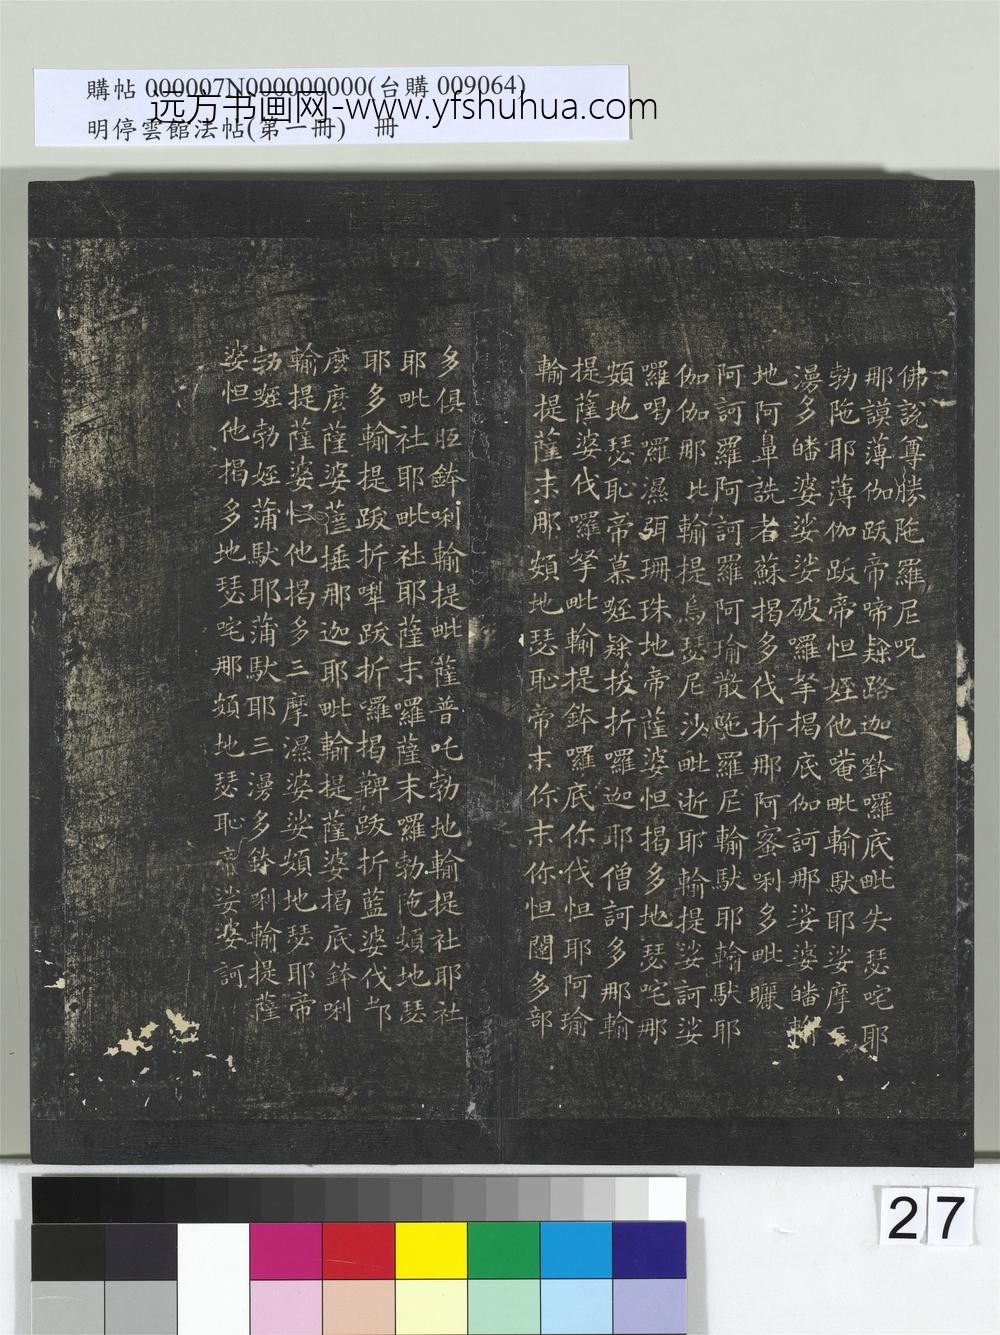 購帖 000007N000000000(台購 009064)
远方书画网-www.yfshuhua.com
明停雲館法帖(第一冊) 冊
佛說尊勝陁羅尼呪
那謨薄伽跋帝啼㨖路迦鉢囉底毗失瑟咤耶
勃陁耶薄伽跋帝怛姪他唵毗輸馱耶娑摩三
漫多皤婆娑娑破囉拏揭底伽訶那娑婆皤輸
地阿鼻詵者蘇揭多伐折那阿蜜唎多毗曬
阿訶羅阿訶羅阿瑜散陁羅尼輸馱耶輸馱耶
伽伽那比輸提烏瑟尼沙毗逝耶輸提娑訶娑
羅喝囉濕弭珊珠地帝薩婆怛揭多地瑟咤那
頞地瑟恥帝慕姪㨖拔折囉迦耶僧訶多那輸
提薩婆伐羅拏毗輸提鉢囉底你伐怛耶阿瑜
輸提薩末那頞地瑟恥帝末你末你怛闥多部
多俱胝鉢唎輸提毗薩普吒勃地輸提社耶社
耶毗社耶毗社耶薩末羅薩末羅勃陁頞地瑟
耶多輸提跋折犁跋折囉揭鞞跋折藍婆伐帀
麼麼薩婆薩埵那迦耶毗輸提薩婆揭底鉢唎
輸提薩婆怛他揭多三摩濕婆娑頞地瑟耶帝
勃姪勃姪蒲馱耶蒲馱耶三漫多鉢唎輸提薩
婆怛他揭多地瑟咤那頞地瑟恥帝娑婆訶
27